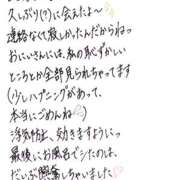 久しぶり(?)に会えたよ〜
連絡なくて寂しかったんだからねっ
おにいさんには、私の恥ずかしい
ところとか全部見られちゃってます
(少しハプニングがあって、
本当にごめんね)
浮気防止、効きますようにっ
最後にお風呂でシたのは、
だいぶ興奮しちゃいました